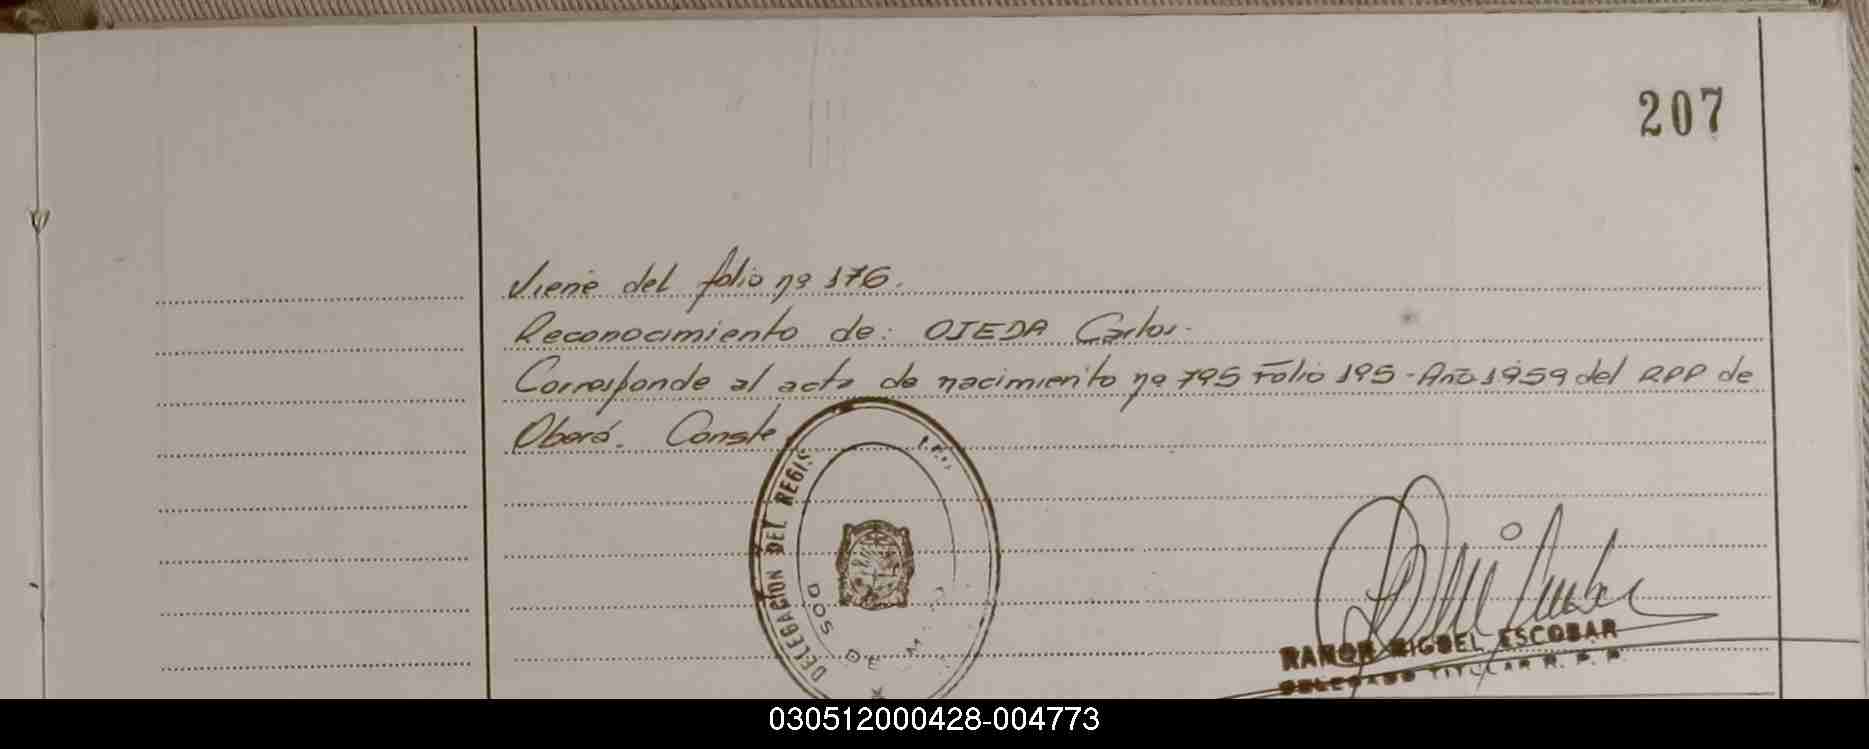 207
Viene del folio nº 176.
Reconocimiento de: OJEDA Carlos.
Corresponde al acta de nacimiento nº 795 Folio 195 - Año 1959 del RPP de
Oberá. Conste
DELEGACION DEL REGIS
DOS DE M
RAMON MIGUEL ESCOBAR
DELEGADO TITULAR R. P. P.
030512000428-004773